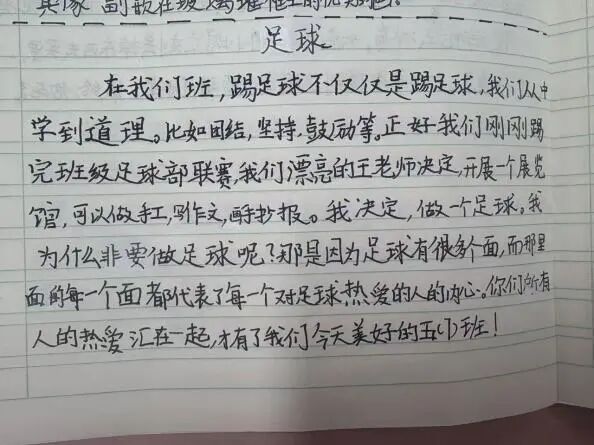 足球
在我们班，踢足球不仅仅是踢足球，我们从中
学到道理。比如团结，坚持，鼓励等。正好我们刚刚踢
完班级足球部联赛，我们漂亮的王老师决定，开展一个展览
馆，可以做手工，写作文，画手抄报。我决定，做一个足球。我
为什么非要做足球呢？那是因为足球有很多个面，而那里
面的每一个面都代表了每一个对足球热爱的人的内心。你们所有
人的热爱汇在一起，才有了我们今天美好的五（1）班！